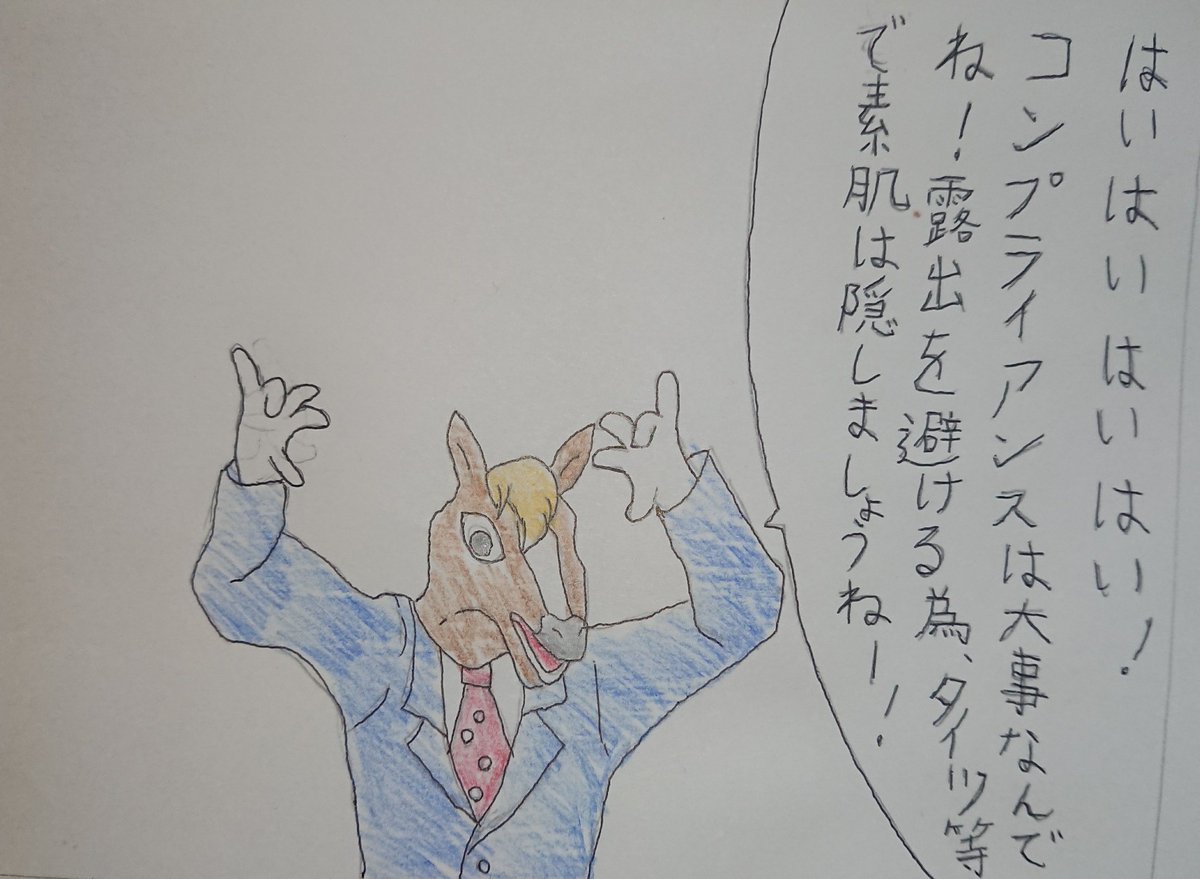 はいはいはいはい！
コンプライアンスは大事なんで
ね！露出を避ける為、タイツ等
で素肌は隠しましょうねー！